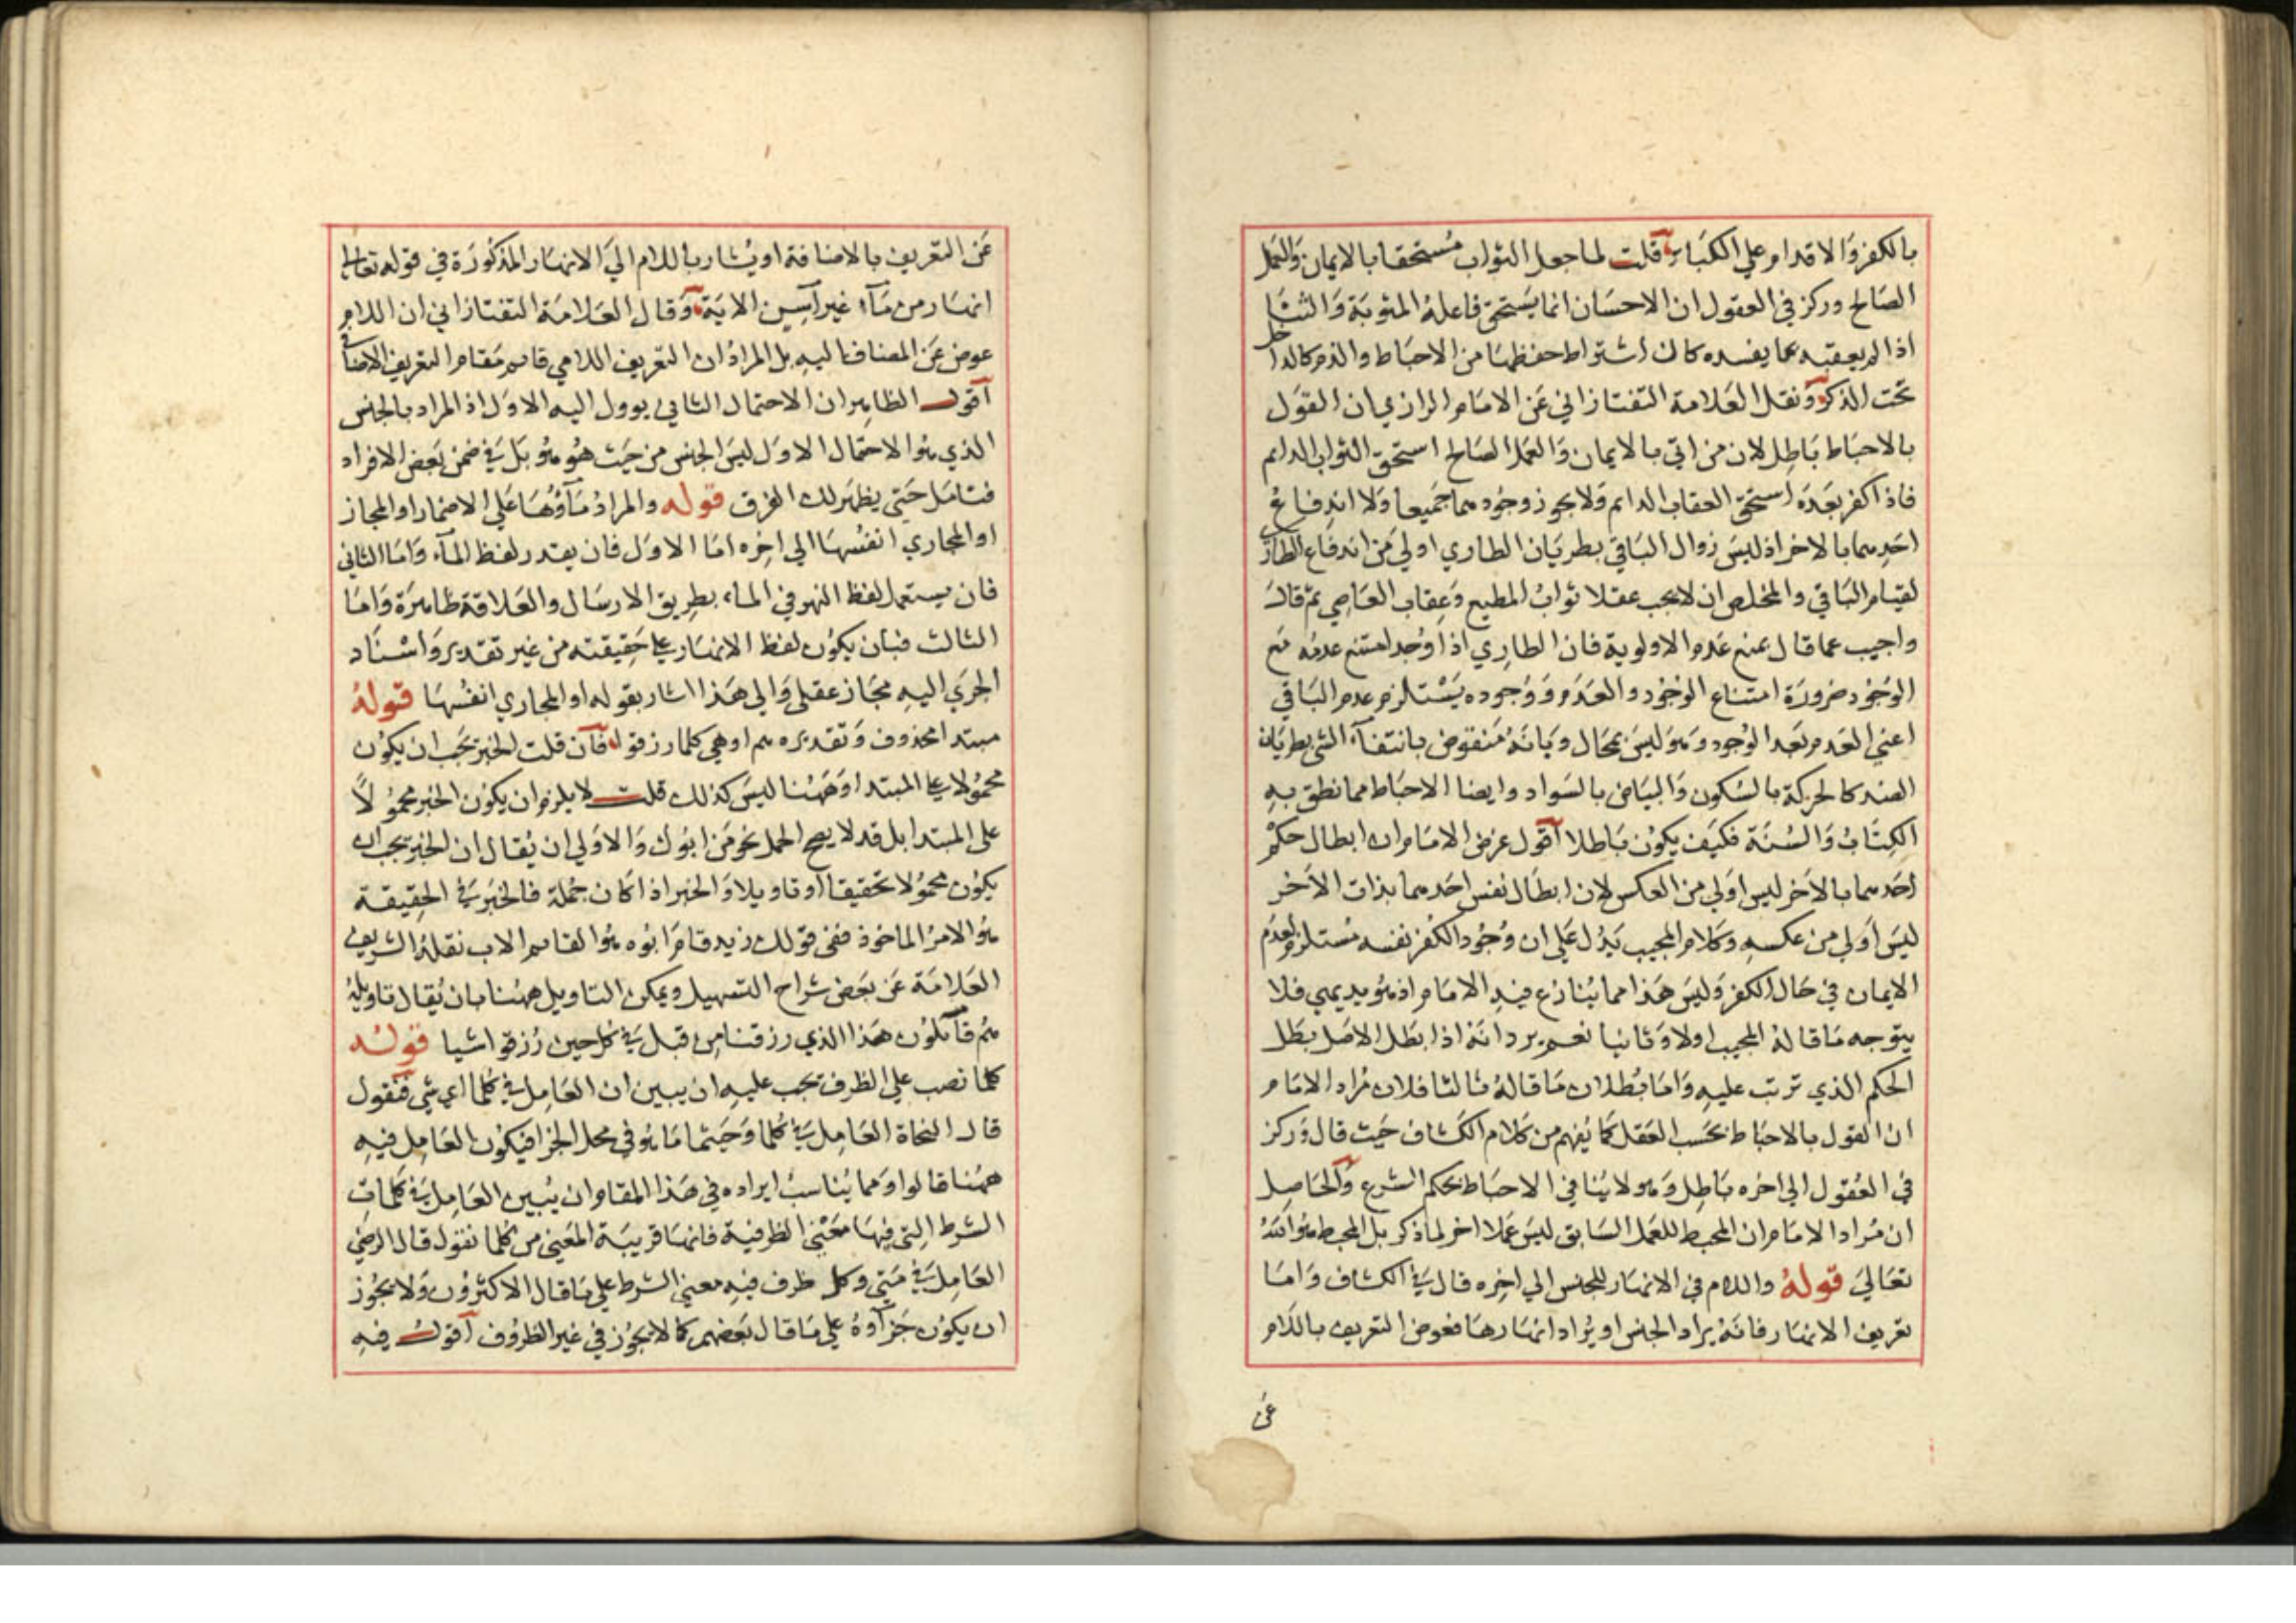 بالكفر والاقدام علي الكبائر قلت لما جعل الثواب مستحقا بالايمان والعمل
الصالح وركز في العقول ان الاحسان انما يستحق فاعله المثوبة والثنا
اذا لم يعقبه بما يفسده كان اشتراط حفظهما من الاحباط والذم كالداخل
تحت الذكر ونقل العلامة التفتازاني عن الامام الرازي ان القول
بالاحباط باطل لان من اتي بالايمان والعمل الصالح استحق الثواب الدايم
فاذا كفر بعده استحق العقاب الدايم ولا يجوز وجودهما جميعا ولا اندفاع
احدهما بالاخر اذ ليس زوال الباقي بطريان الطاري اولي من اندفاع الطاري
لقيام الباقي والمخلص ان لا يجب عقلا ثواب المطيع وعقاب العاصي ثم قال
واجيب عما قال بمنع عدم الاولوية فان الطاري اذا وجد امتنع عدمه مع
الوجود ضرورة امتناع الوجود والعدم ووجوده يستلزم عدم الباقي
اعني العدم بعد الوجود وهو ليس بمحال وبانه منقوض بانتفآء الشئ بطريان
الضد كالحركة بالسكون والبياض بالسواد وايضا الاحباط مما نطق به
الكتاب والسنة فكيف يكون باطلا اقول غرض الامام ان ابطال حكم
احدهما بالاخر ليس اولي من العكس لان ابطال نفس احدهما بذات الاخر
ليس اولي من عكسه وكلام المجيب يدل علي ان وجود الكفر نفسه مستلزم لعدم
الايمان في حال الكفر وليس هذا مما ينازع فيه الامام اذ هو بديهي فلا
يتوجه ما قاله المجيب اولا وثانيا نعم يرد انه اذا بطل الاصل بطل
الحكم الذي ترتب عليه واما بطلان ما قاله ثالثا فلان مراد الامام
ان القول بالاحباط بحسب العقل كما يفهم من كلام الكشاف حيث قال وركز
في العقول الي اخره باطل وهو لا ينافي الاحباط بحكم الشرع والحاصل
ان مراد الامام ان المحبط للعمل السابق ليس عملا اخر لما ذكر بل المحبط هو الله
تعالي قوله واللام في الانهار للجنس الي اخره قال في الكشاف واما
تعريف الانهار فانه يراد الجنس او يراد انهارها فعوض التعريف باللام
عن
عن التعريف بالاضافة او يشار باللام الي الانهار المذكورة في قوله تعالي
انهار من مآء غير آسن الاية وقال العلامة التفتازاني ان اللام
عوض عن المضاف اليه بل المراد ان التعريف اللامي قايم مقام التعريف الاضافي
اقول الظاهر ان الاحتمال الثاني يوول اليه الاول اذ المراد بالجنس
الذي هو الاحتمال الاول ليس الجنس من حيث هو هو بل في ضمن بعض الافراد
فتامل حتي يظهر لك الفرق قوله والمراد مآؤها علي الاضمار او المجاز
او المجاري انفسها الي اخره اما الاول فان يقدر لفظ المآء واما الثاني
فان يستعمل لفظ النهر في الماء بطريق الارسال والعلاقة ظاهرة واما
الثالث فبان يكون لفظ الانهار علي حقيقته من غير تقدير واسناد
الجري اليه مجاز عقلي والي هذا اشار بقوله او المجاري انفسها قوله
مبتدا محذوف وتقديره هم او هي كلما رزقوا فان قلت الخبر يجب ان يكون
محمولا علي المبتدا وههنا ليس كذلك قلت لا يلزم ان يكون الخبر محمولاً
على المبتدا بل قد لا يصح الحمل نحو من ابوك والاولي ان يقال ان الخبر يجب ان
يكون محمولا تحقيقا او تاويلا والخبر اذا كان جملة فالخبر في الحقيقة
هو الامر الماخوذ ففي قولك زيد قام ابوه هو القايم الاب نقله الشريف
العلامة عن بعض شراح التسهيل ويمكن التاويل ههنا بان يقال تاويله
هم قآئلون هذا الذي رزقنا من قبل في كل حين رزقوا شيا قوله
كلما نصب علي الظرف يجب عليه ان يبين ان العامل في كلما اي شي فنقول
قال النحاة العامل في كلما وحيثما ما هو في محل الجزا فيكون العامل فيه
ههنا قالوا ومما يناسب ايراده في هذا المقام ان يبين العامل في كلمات
الشرط التي فيها معني الظرفية فانها قريبة المعني من كلما نقول قال الرضي
العامل في متي وكل ظرف فيه معني الشرط علي ما قال الاكثرون ولا يجوز
ان يكون جزآوه علي ما قال بعضهم كما لا يجوز في غير الظروف اقول فيه